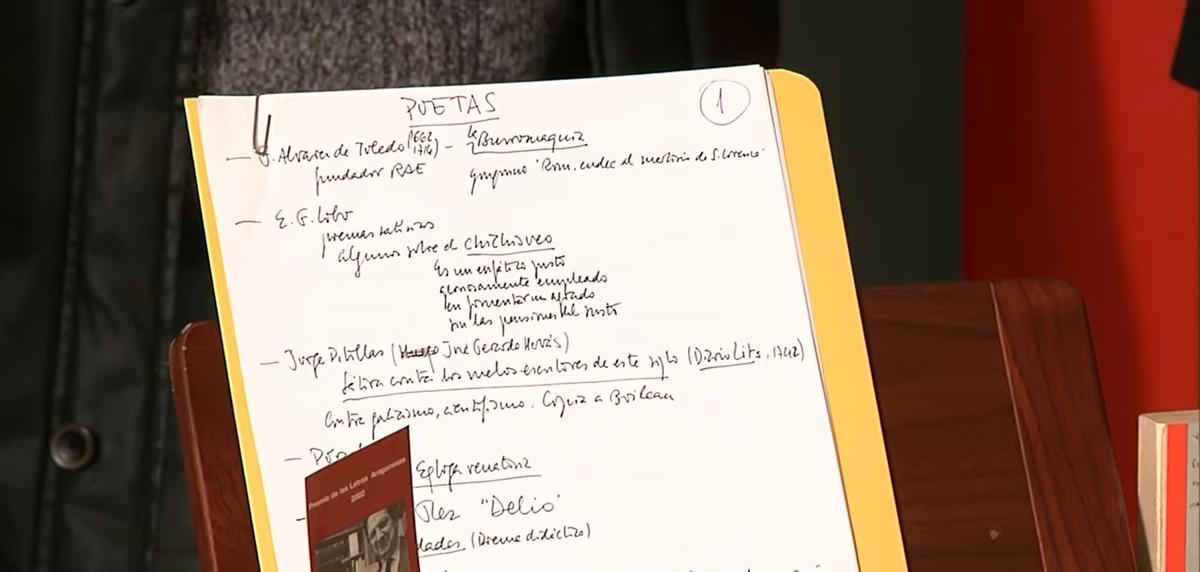 POETAS
1
— G. Alvarez de Toledo (1662 1714) — La Burromaquia
fundador RAE
gongorino 'Rom. endec al martirio de S. Lorenzo'
— E. G. Lobo
poemas satíricos
algunos sobre el chichisveo
Es un
empleado
en fomentar un
sin las pensiones del gusto
— Jorge Pitillas (José Gerardo Hervás)
Sátira contra los malos escritores de este siglo (Diario Lits, 1742)
Contra galicismo, . Copia a Boileau
—
Egloga venatoria
"Delio"
dades (Drama didáctico)
Premio de las Letras Aragonesas
2002